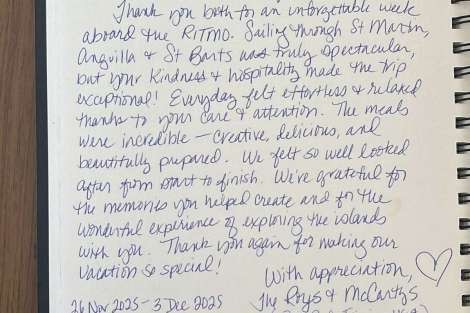 Thank you both for an unforgettable week
aboard the RITMO. Sailing through St Martin,
Anguilla & St Barts was truly spectacular,
but your kindness & hospitality made the trip
exceptional! Everyday felt effortless & relaxed
thanks to your care & attention. The meals
were incredible — creative, delicious, and
beautifully prepared. We felt so well looked
after from start to finish. We're grateful for
the memories you helped create and for the
wonderful experience of exploring the islands
with you. Thank you again for making our
vacation so special!
With appreciation,
26 Nov 2025 - 3 Dec 2025 The Roys & McCartys